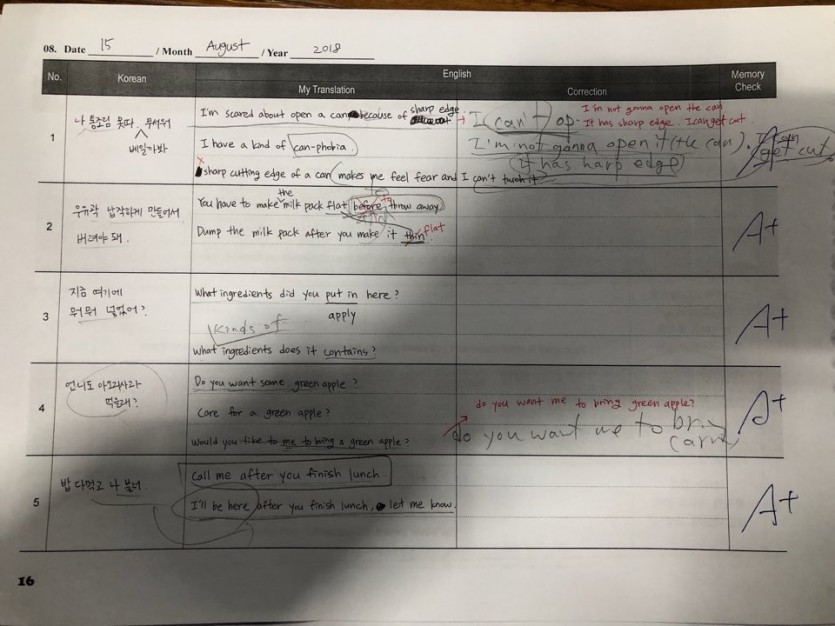 08. Date 15 / Month August / Year 2018
No. Korean English Memory Check
My Translation Correction
1
나 통조림 못따. 무서워
베일까봐
I'm scared about open a can because of sharp edge
I have a kind of can-phobia.
sharp cutting edge of a can makes me feel fear and I can't touch it
I can't op-
I'm not gonna open the can
It has sharp edge. I can get cut
I'm not gonna open it (the can). I can
(It has harp edge) get cut.
A+
2
우유곽 납작하게 만들어서
버려야 돼.
You have to make the milk pack flat before throw away
Dump the milk pack after you make it thin flat
A+
3
지금 여기에
뭐뭐 넣었어?
What ingredients did you put in here?
apply
Kinds of
What ingredients does it contains?
A+
4
언니도 아오리사과
먹을래?
Do you want some green apple?
Care for a green apple?
Would you like to me to bring a green apple?
do you want me to bring green apple?
do you want me to bring
carry
A+
5
밥 다먹고 나 불러
Call me after you finish lunch
I'll be here after you finish lunch, let me know.
A+
16